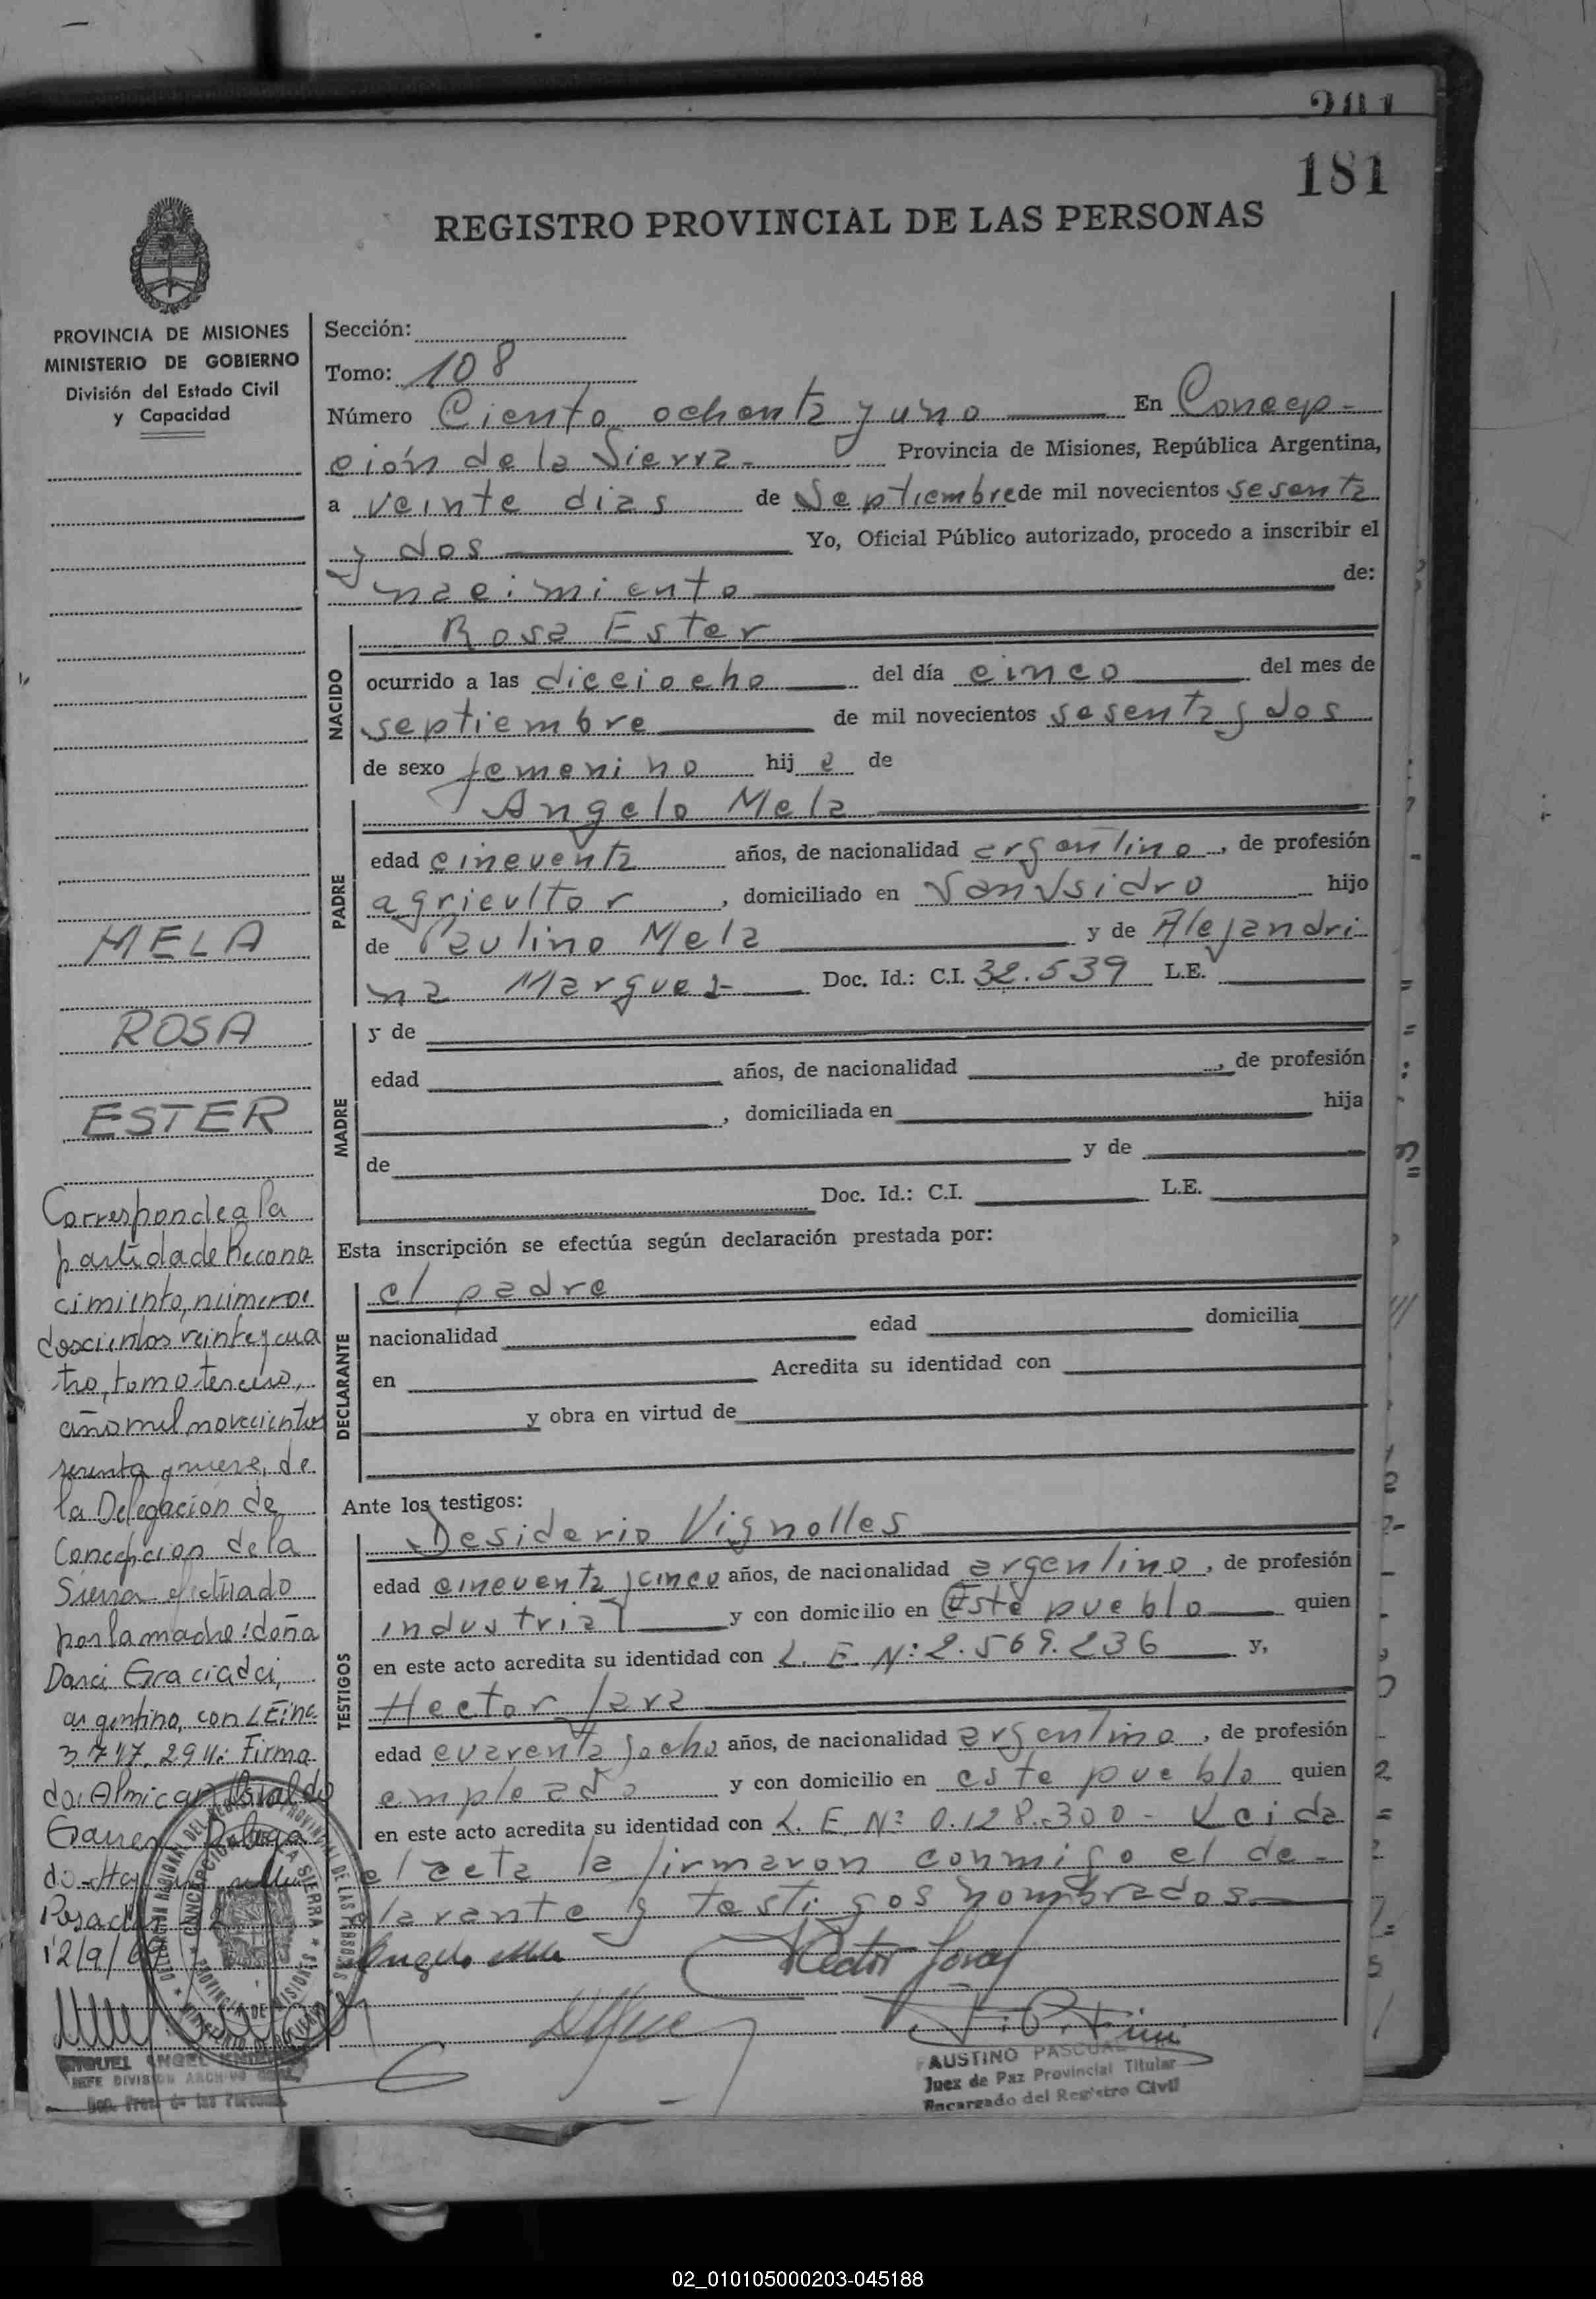 181
REGISTRO PROVINCIAL DE LAS PERSONAS
PROVINCIA DE MISIONES
MINISTERIO DE GOBIERNO
División del Estado Civil
y Capacidad
Sección:
Tomo: 108
Número Ciento ochenta y uno En Concep-
ción de la Sierra- Provincia de Misiones, República Argentina,
a veinte dias de Septiembre de mil novecientos sesenta
y dos Yo, Oficial Público autorizado, procedo a inscribir el
nacimiento de:
NACIDO
Rosa Ester
ocurrido a las dieciocho del día cinco del mes de
septiembre de mil novecientos sesenta y dos
de sexo femenino hija de
PADRE
Angelo Mela
edad cincuenta años, de nacionalidad argentino, de profesión
agricultor, domiciliado en San Isidro hijo
de Paulino Mela y de Alejandri
na Marquez- Doc. Id.: C.I. 32.539 L.E.
MADRE
y de
edad años, de nacionalidad , de profesión
, domiciliada en hija
de y de
Doc. Id.: C.I. L.E.
Esta inscripción se efectúa según declaración prestada por:
DECLARANTE
el padre
nacionalidad edad domicilia
en Acredita su identidad con
y obra en virtud de
Ante los testigos:
TESTIGOS
Desiderio Vignolles
edad cincuenta y cinco años, de nacionalidad argentino, de profesión
industrial y con domicilio en Este pueblo quien
en este acto acredita su identidad con L. E. Nº: 2.569.236 y,
Hector Jara
edad cuarenta y ocho años, de nacionalidad argentino, de profesión
empleado y con domicilio en este pueblo quien
en este acto acredita su identidad con L. E. Nº 0.128.300- Leida
el acta la firmaron conmigo el de-
clarante y testigos nombrados.
Angelo Mela Hector Jara
FAUSTINO PASCUAL
Juez de Paz Provincial Titular
Encargado del Registro Civil
MELA
ROSA
ESTER
Corresponde a la
partida de Recono
cimiento, número:
doscientos veinte y cua
tro, tomo tercero,
año mil novecientos
sesenta y nueve, de
la Delegación de
Concepcion de la
Sierra efectuado
por la madre: doña
Darci Graciadei,
argentino, con L E nº
3.747.294: Firma
do: Almicar Osvaldo
Posadas
12/9/69
DELEGACION REGIONAL DEL REGISTRO PROVINCIAL DE LAS PERSONAS
CONCEPCION DE LA SIERRA
PROVINCIA DE MISIONES
MINISTERIO DE GOBIERNO
MIGUEL ANGEL
JEFE DIVISION ARCHIVO GRAL.
Reg. Prov. de las Personas
02_010105000203-045188